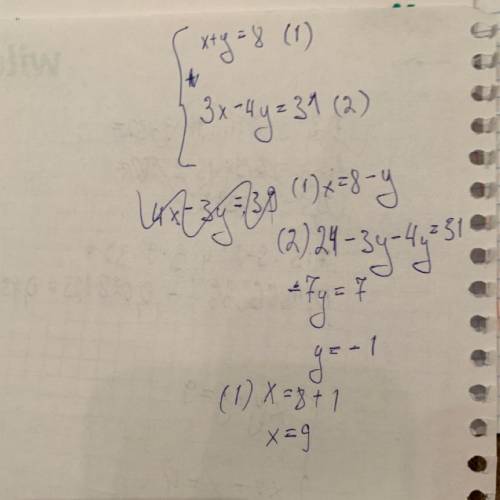 x+y=8 (1)
3x-4y=31 (2)
4x-3y=39
(1) x=8-y
(2) 24-3y-4y=31
-7y=7
y=-1
(1) x=8+1
x=9